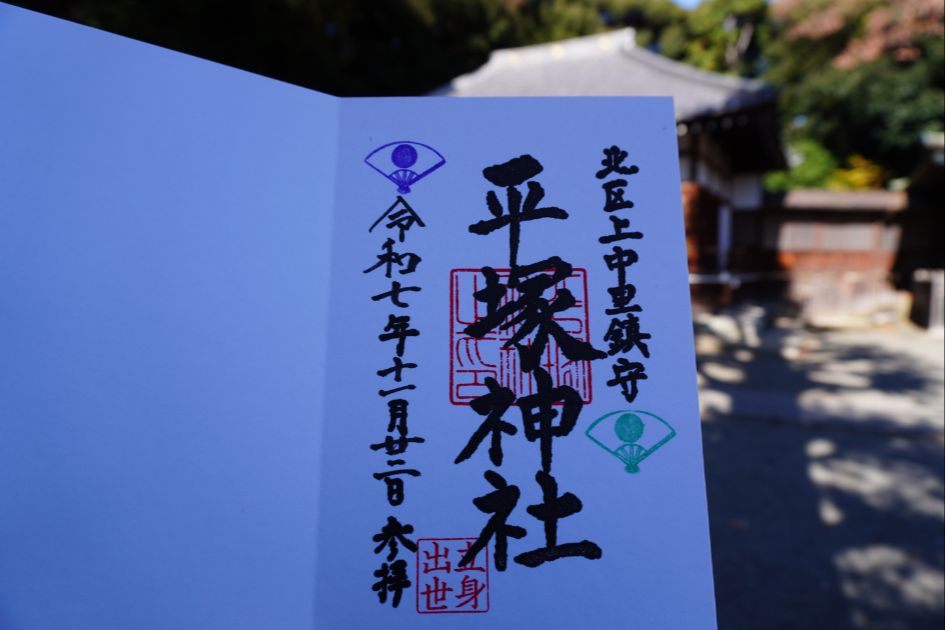 北区上中里鎮守
平塚神社
立身出世
令和七年十一月廿二日 参拝